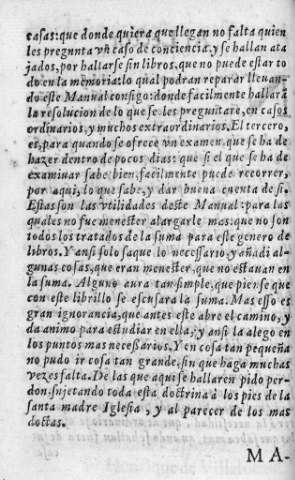 casas: que donde quiera que llegan no falta quien
les pregunta vñ caso de conciencia, y se hallan ata
jados, por hallarse sin libros, que no puede estar to
do en la memoria: lo qual podran reparar lleuan-
do este Manual consigo: donde facilmente hallarà
la resolucion de lo que se les preguntare, en casos
ordinarios, y muchos extraordinarios. El tercero,
es, para quando se ofrece vn examen, que se ha de
hazer dentro de pocos dias: que si el que se ha de
examiuar sabe bien, facilmente puede recorrer,
por aqui, lo que sabe, y dar buena cuenta de si.
Estas son las vtilidades deste Manual: para las
quales no fue menester alargarle mas: que no son
todos los tratados de la suma para este genero de
libros. Y ansi solo saque lo necessario, y añadi al-
gunas cosas, que eran menester, que no estauan en
la suma. Alguno aura tan simple, que piense que
con este librillo se escusara la suma. Mas esso es
gran ignorancia, que antes este abre el camino, y
da animo para estudiar en ella, y ansi la alego en
los puntos mas necessarios. Y en cosa tan pequeña
no pudo ir cosa tan grande, sin que haga muchas
vezes falta. De las que aqui se hallaren pido per-
don, sujetando toda esta doctrina à los pies de la
santa madre Iglesia, y al parecer de los mas
doctas.
MA-